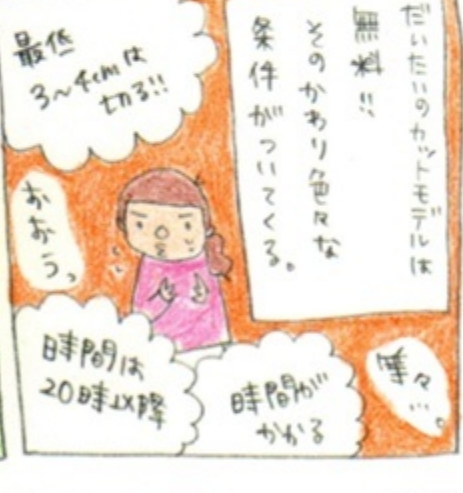 だいたいのカットモデルは
無料!!
そのかわり色々な
条件がついてくる。
最低
3〜4cmは
切る!!
おおうっ
時間は
20時以降
時間が
かかる
等々…。